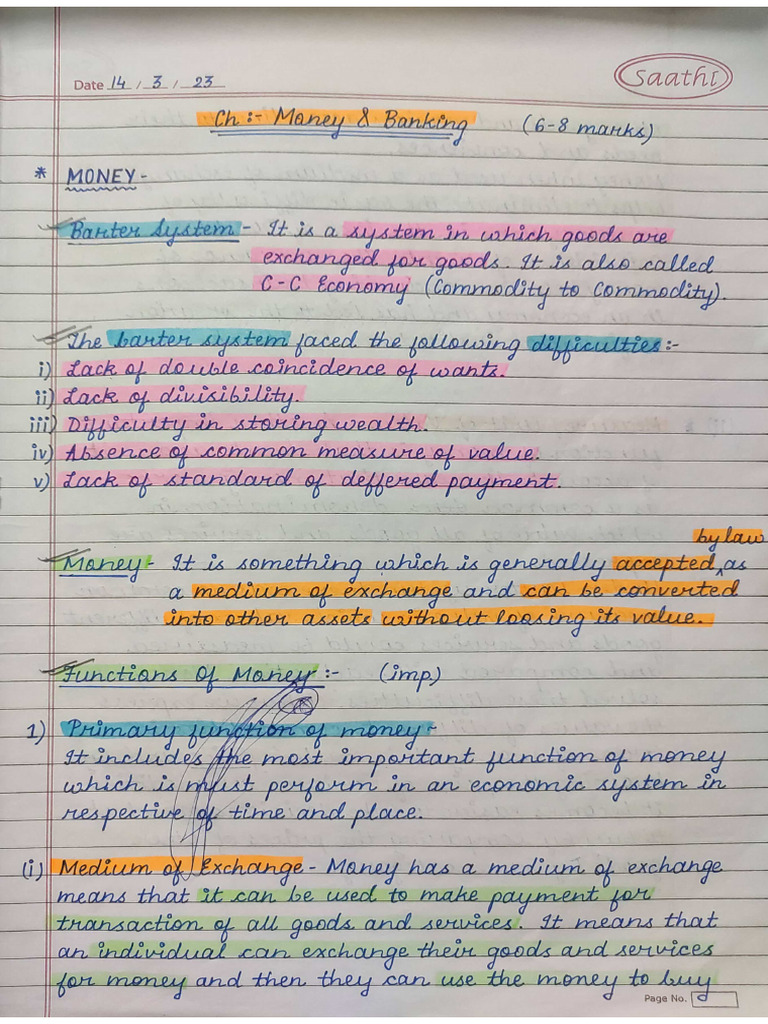 Saathi
Date 14 / 3 / 23
Ch :- Money & Banking (6-8 marks)
* MONEY -
Barter System - It is a system in which goods are
exchanged for goods. It is also called
C-C Economy (Commodity to Commodity).
The barter system faced the following difficulties :-
i) Lack of double coincidence of wants.
ii) Lack of divisibility.
iii) Difficulty in storing wealth.
iv) Absence of common measure of value.
v) Lack of standard of deffered payment.
by law
Money - It is something which is generally accepted ^ as
a medium of exchange and can be converted
into other assets without loosing its value.
Functions Of Money :- (imp.)
1) Primary function of money -
It includes the most important function of money
which is must perform in an economic system in
respective of time and place.
(i) Medium of Exchange - Money has a medium of exchange
means that it can be used to make payment for
transaction of all goods and services. It means that
an individual can exchange their goods and services
for money and then they can use the money to buy
Page No.